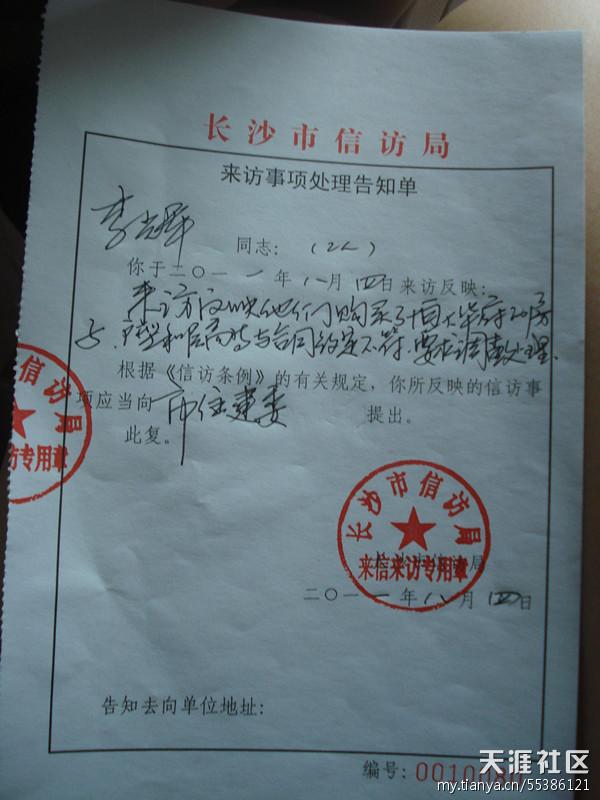 长沙市信访局
来访事项处理告知单
李 同志：（2人）
你于二〇一一年八月四日来访反映：
来访反映他们购买了恒大华府的房
子，户型和层高等与合同约定不符，要求调查处理。
根据《信访条例》的有关规定，你所反映的信访事
项应当向 市住建委 提出。
此复。
信访局
访专用章
长沙市信访局
来信来访专用章
长沙市信访局
二〇一一年八月四日
告知去向单位地址：
编号：00100
天涯社区
my.tianya.cn/55386121